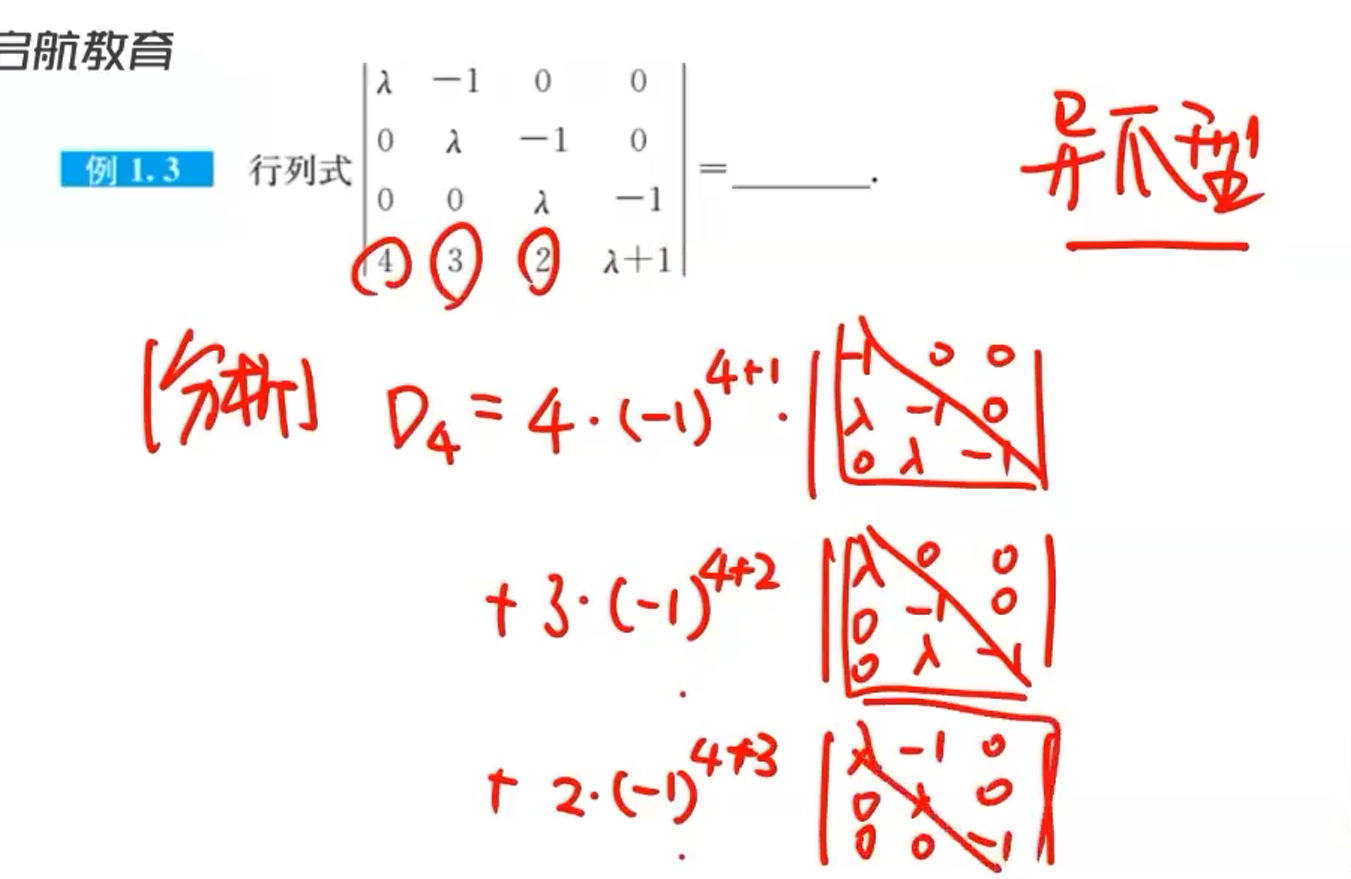 启航教育
例 1.3 行列式
λ −1 0 0
0 λ −1 0
0 0 λ −1
4 3 2 λ+1
=________.
异爪型
[分析] D₄ = 4·(-1)⁴⁺¹·
-1 0 0
λ -1 0
0 λ -1
+ 3·(-1)⁴⁺²·
λ 0 0
0 -1 0
0 λ -1
+ 2·(-1)⁴⁺³·
λ -1 0
0 λ 0
0 0 -1